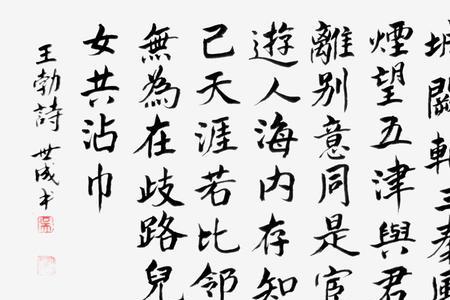 城闕輔三秦風
煙望五津與君
離別意同是宦
遊人海內存知
己天涯若比鄰
無為在歧路兒
女共沾巾
王勃詩 世成书